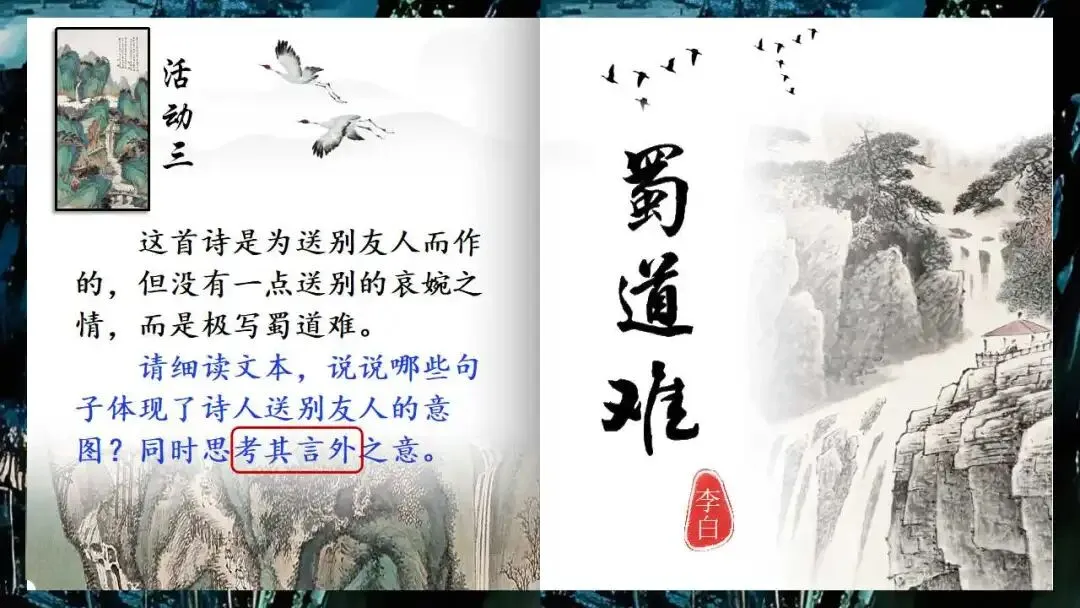 活动三
这首诗是为送别友人而作
的，但没有一点送别的哀婉之
情，而是极写蜀道难。
请细读文本，说说哪些句
子体现了诗人送别友人的意
图？同时思考其言外之意。
蜀道难
李白